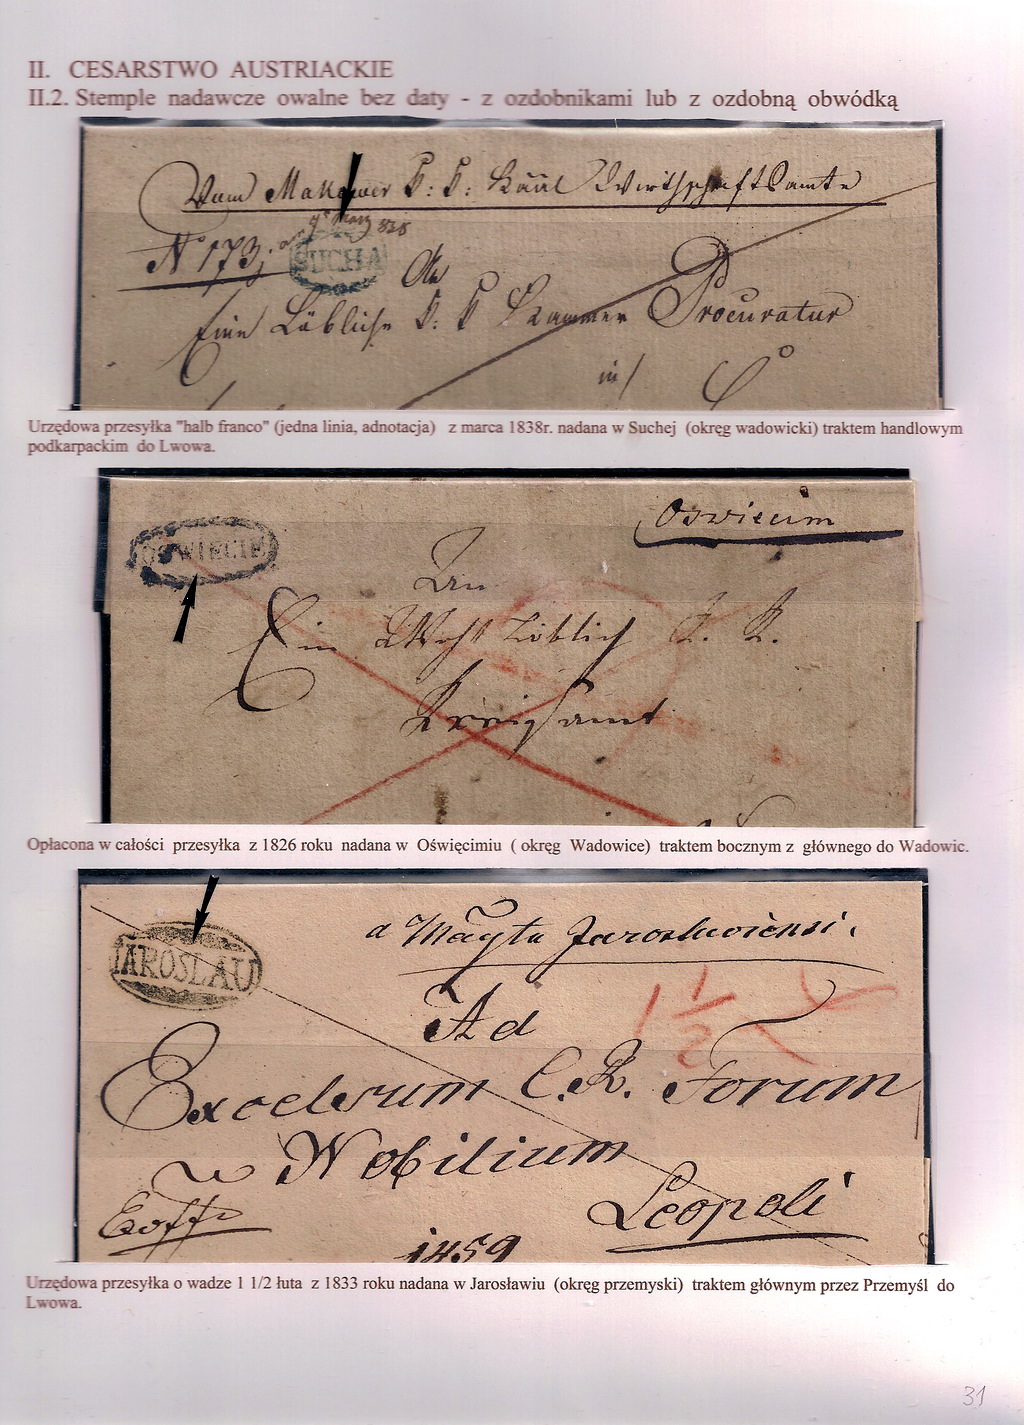 II. CESARSTWO AUSTRIACKIE
II.2. Stemple nadawcze owalne bez daty - z ozdobnikami lub z ozdobną obwódką
Vom Makower K: K: Kääl Wirthschafts amte
9t März 838
N° 173,
SUCHA
An
Eine Löbliche K: K Kammer Procuratur
in
Urzędowa przesyłka "halb franco" (jedna linia, adnotacja) z marca 1838r. nadana w Suchej (okręg wadowicki) traktem handlowym
podkarpackim do Lwowa.
Oswiecim
OSWIECIM
An
Ein Wohl Löblich K. K.
Kreisamt
Opłacona w całości przesyłka z 1826 roku nadana w Oświęcimiu ( okręg Wadowice) traktem bocznym z głównego do Wadowic.
a Magtu Jaroslaviensi.
IAROSLAU
1 1/2
Ad
Excelsum C. R. Forum
Nobilium
w
Leopoli
Exoff
1459
Urzędowa przesyłka o wadze 1 1/2 łuta z 1833 roku nadana w Jarosławiu (okręg przemyski) traktem głównym przez Przemyśl do
Lwowa.
31